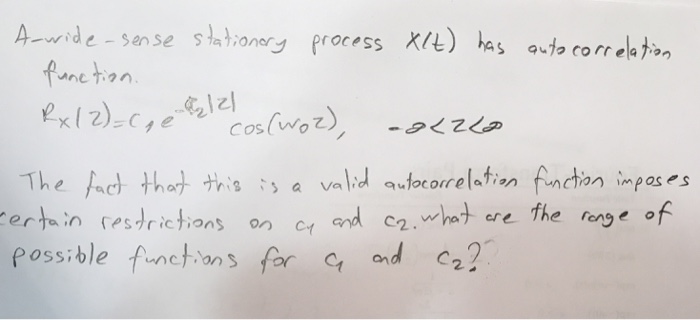 A-wide-sense stationary process X(t) has autocorrelation
function.
Rx(z)=c₁e^-c₂|z| cos(w₀z), -∞<z<∞
The fact that this is a valid autocorrelation function imposes
certain restrictions on c₁ and c₂. what are the range of
possible functions for c₁ and c₂?